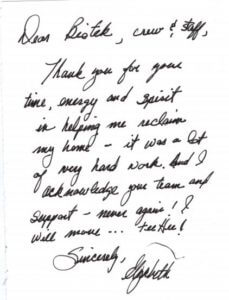 Dear Bistek, crew & staff,
Thank you for your
time, energy and spirit
in helping me reclaim
my home - it was a lot
of very hard work. And I
acknowledge your team and
support - never again! I
will move ... tee Hee!
Sincerely,
Elizabeth